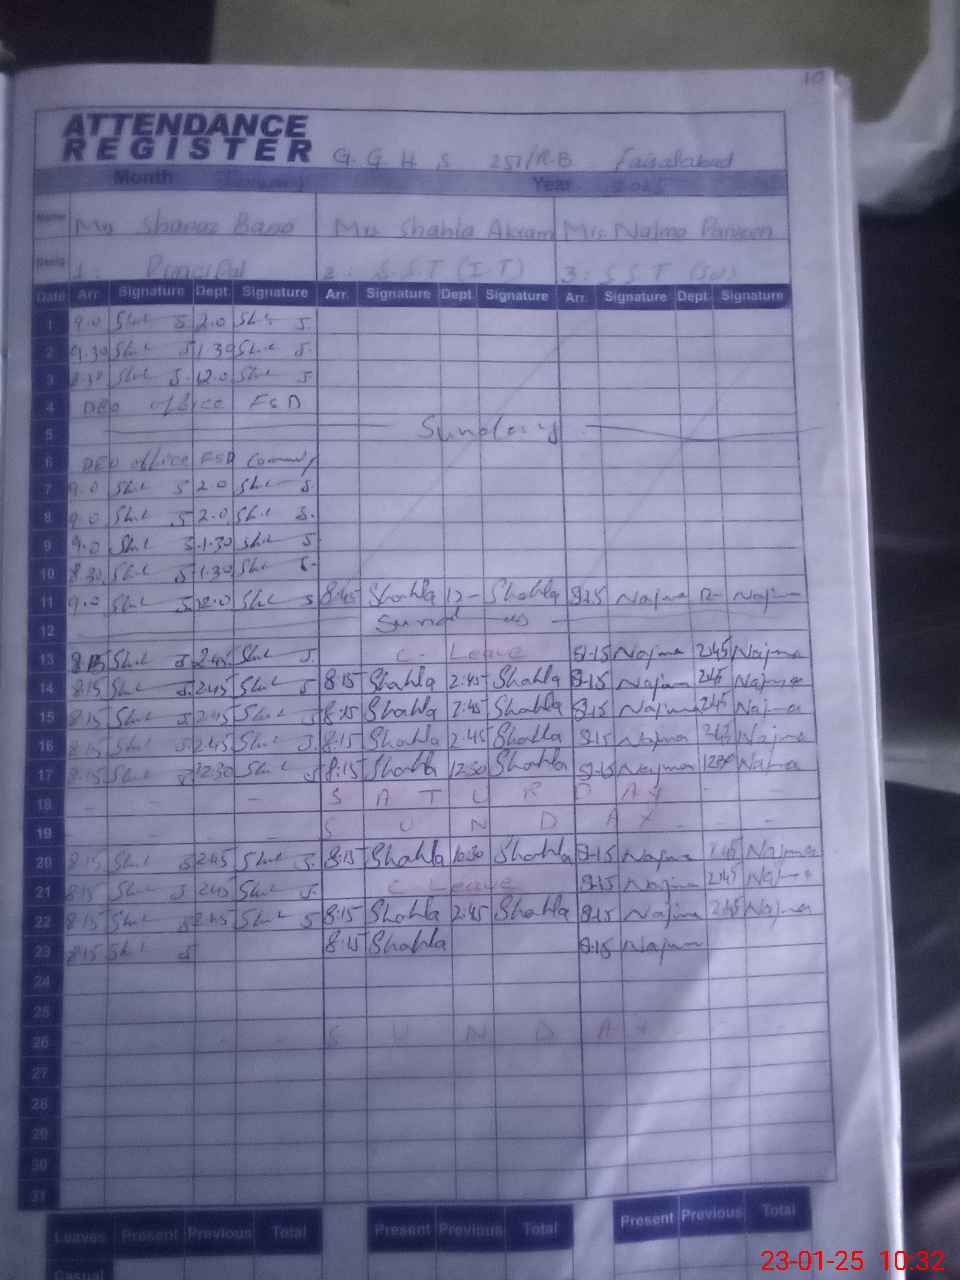 10
ATTENDANCE
REGISTER G. G. H. S 251/R.B Faisalabad
Month January Year 2025
Name Mrs Shanaz Bano Mrs. Shahla Akram Mrs. Najma Parveen
1: Principal 2: S.S.T (I.T) 3: S.S.T
Date Arr. Signature Dept. Signature Arr. Signature Dept. Signature Arr. Signature Dept. Signature
1 9.0 2.0
2 9.30 1.30
3 8.30 12.0
4 DEO office FSD
5 Sunday
6 DEO office FSD
7 9.0 2.0
8 9.0 2.0
9 9.0 1.30
10 8.30 1.30
11 9.0 12.0 8:45 Shahla 12- Shahla 8:15 Najma 12- Najma
12 Sunday
13 8:15 2:45 C. Leave 8:15 Najma 2:45 Najma
14 8:15 2:45 8:15 Shahla 2:45 Shahla 8:15 Najma 2:45 Najma
15 8:15 2:45 8:15 Shahla 2:45 Shahla 8:15 Najma 2:45 Najma
16 8:15 2:45 8:15 Shahla 2:45 Shahla 8:15 Najma 2:45 Najma
17 8:15 12:30 8:15 Shahla 12:30 Shahla 8:15 Najma Najma
18 - - - S A T U R D A Y - -
19 - - - S U N D A Y - -
20 8:15 2:45 8:15 Shahla 10:30 Shahla 8:15 Najma 2:45 Najma
21 8:15 2:45 C Leave 8:15 Najma 2:45 Najma
22 8:15 2:45 8:15 Shahla 2:45 Shahla 8:15 Najma 2:45 Najma
23 8:15 8:15 Shahla 8:15 Najma
24
25
26 S U N D A Y
27
28
29
30
31
Leaves Present Previous Total Present Previous Total Present Previous Total
Casual
23-01-25 10:32